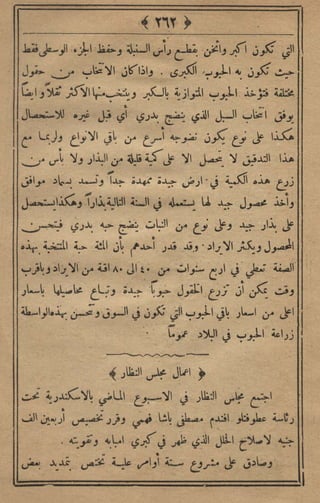 ﴿ ٢٦٢ ﴾
التي تكون اكبر واثخن بقطع رأس السنبلة وحفظ الجزء الوسطى فقط
حيث تكون به الحبوب الكبرى . واذا كان الانتخاب من حقول
مختلفة فتؤخذ الحبوب المتوازية بالكبر وينتخب منها الاكثر ثقلاً وايضاً
يوفق انتخاب السبل الذي ينضج بدري أي قبل غيره للاستحصال
هكذا على نوع يكون نضوجه أسرع من باقي الانواع ولربما مع
هذا التدقيق لا يتحصل الا على كمية قليلة من البذار ولا بأس من
زرع هذه الكمية في ارض جيدة ممهدة جداً وتسمد بسماد موافق
وأخذ محصول جيد لها يستعمله في السنة التالية بذاراً وهكذا يستحصل
على بذار جيد وعلى نوع من النبات ينضج حبه بدري فيتحسن
المحصول ويكثر الايراد . وقد قدر أحدهم بأن المئة حبة المنتخبة بهذه
الصفة تعطي في اربع سنوات من ٤٠ الى ٨٠ اقة من الايراد وباقرب
وقت يمكن أن تزرع الحقول حبوباً جيدة وتباع محاصيلها باسعار
اعلى من اسعار باقي الحبوب التي تكون في السوق وتتحسن بهذه الواسطة
زراعة الحبوب في البلاد عموماً
﴿ اعمال مجلس النظار ﴾
اجتمع مجلس النظار في الاسبوع الماضي بالاسكندرية تحت
رئاسة عطوفتلو افندم مصطفى باشا فهمي وقرر تخصيص أربعين الف
جنيه لاصلاح الخلل الذي ظهر في كبري امبابه وتقويته .
وصادق على مشروع ستة أوامر علية تختص بتمديد بعض